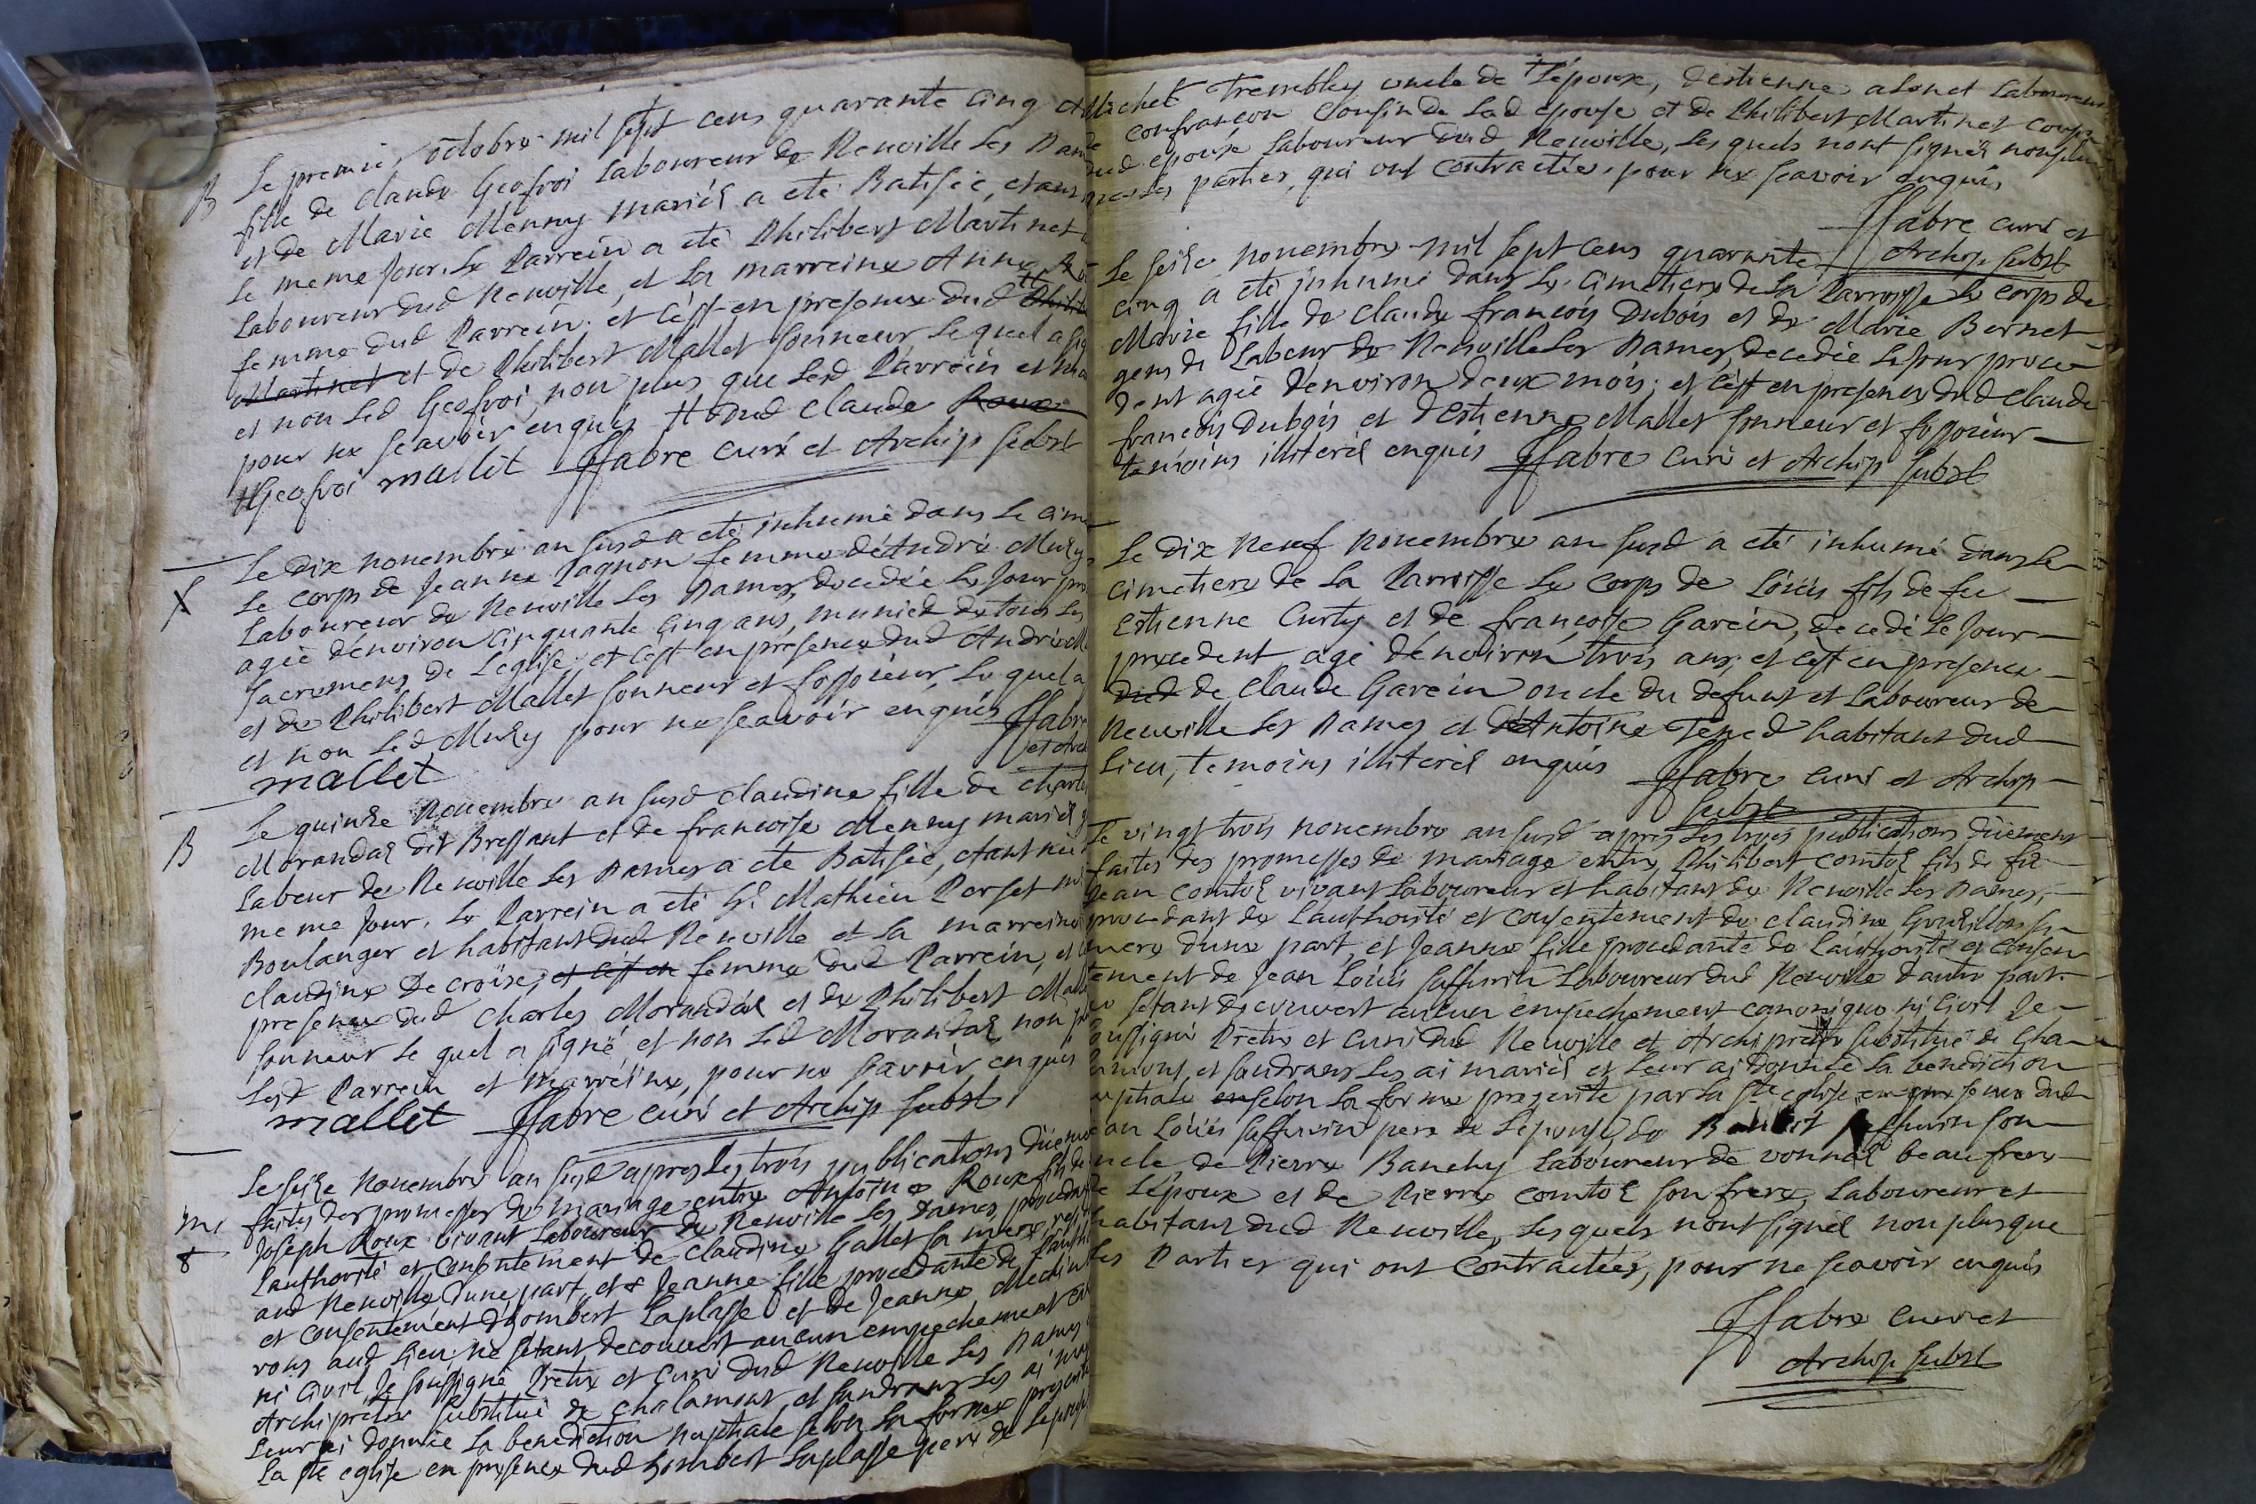 B
Le premier octobre mil sept cens quarante cinq
fille de claude Geofroi Laboureur de Neuville Les Dam
et de Marie Menny mariés a eté Batisée, etant
Le meme Jour. Le Parrein a eté Philibert Martinet
Laboureur dud Neuville, et La marreine Anne
femme dud Parrein; et c'est en presence dud
Martinet et de Philibert Mallet sonneur, Le quel a sig
et non Led Geofroi, non plus que Lesd Parrein et
pour ne sçavoir enquis # dud claude Roux
#Geofroi mallet ffabre curé et Archip subst
X
Le Dix novembre an susd a eté inhumé dans Le cime
Le corps de Jeanne Pagnon femme d'André Muzy
Laboureur de Neuville Les Dames, decedée Le Jour pre
agée d'environ cinquante cinq ans, munied de tous Les
sacremens de L'eglise; et c'est en presence dud André
et de Philibert Mallet sonneur et fossoïeur, Le quel a
et non Led Muzy pour ne sçavoir enquis ffabre
mallet et Arch
B
Le quinze Novembre an susd claudine fille de charles
Morandas dit Bressant et de francoise Menny mariés
Labeur de Neuville Les Dames a eté Batisée, etant née
meme Jour. Le Parrein a eté Sr. Mathieu Perset
Boulanger et habitant dud Neuville et La marreine
claudine Decroise, et c'est en femme dud Parrein, et
presence dud Charles Morandas et de Philibert Mall
sonneur Le quel a signé, et non Led Morandas non
Lesd Parrein et marréine, pour ne sçavoir enquis
mallet ffabre curé et Archip subst
m
8
Le seize Novembre an susd apres Les trois publications düeme
faites des promesses de mariage entre Antoine Roux fils de
Joseph Roux vivant Laboureur de Neuville Les Dames, procedant
L'authorité et consentement de claudine Gallet sa mere
aud Neuville d'une part, et Jeanne fille procedante de L'auth
et consentement d'hombert Laplasse et de Jeanne
aud Lieu; ne s'etant decouvert aucun empechement can
ni civil, Je soussigné Pretre et Curé dud Neuville Les Dames
Archiprêtre substitué de chalamont et sandrans Les ai
Leur ai donnée La benediction nuptiale selon La forme prescrite
La ste eglise en presence dud hombert Laplasse pere de L'epouse
Michel Trembley oncle de L'époux, d'estienne alonet Laboureur
de confrancon cousin de Lad epouse et de Philibert Martinet
dud epoux Laboureur dud Neuville, Les quels n'ont signés non plus
que Les parties, qui ont contractées, pour ne sçavoir enquis
ffabre curé et
Archip subst
Le seize novembre mil sept cens quarante
cinq a eté inhumé dans Le cimetiere de La Parroisse Le corps de
Marie fille de claude francois Dubois et de Marie Bernet
gens de Labeur de Neuville Les Dames, decedée Le Jour prece
dent agée d'environ deux mois; et c'est en presence dud claude
francois Dubois et d'estienne Mallet sonneur et fossoïeur
temoins illiterés enquis ffabre curé et Archip subst
Le dix neuf novembre an susd a eté inhumé dans Le
cimetiere de La Parroisse Le corps de Loüis fils de feu
Estienne Curty et de francoise Garein, decedé Le Jour
precedent agé d'environ trois ans; et c'est en presence
dud de Claude Garein oncle du defunt et Laboureur de
Neuville Les Dames et d'Antoine habitant dud
Lieu, temoins illiterés enquis ffabre curé et Archip
subst
Le vingt trois novembre an susd apres Les trois publications düement
faites des promesses de mariage entre Philibert comtos fils de fû
Jean comtos vivant Laboureur et habitant de Neuville Les Dames,
procedant de L'authorité et consentement de claudine sa
mere d'une part, et Jeanne fille procedante de L'authorité et consen
tement de Jean Loüis saffurin Laboureur dud Neuville d'autre part.
ne s'etant decouvert aucun empechement canonique ni civil Je
soussigné Pretre et Curé dud Neuville et Archipretre substitué de Cha
lamont, et sandrans Les ai mariés et Leur ai donnée La benediction
nuptiale selon La forme prescrite par La ste eglise en presence dud
Jean Loüis saffurin pere de L'epouse, de saffurin son
oncle, de Pierre Banchy Laboureur de vonnas beau frere
de L'époux et de Pierre comtos son frere, Laboureur et
habitant dud Neuville, Les quels n'ont signés non plus que
Les Parties qui ont contractées, pour ne sçavoir enquis
ffabre curé et
Archip subst